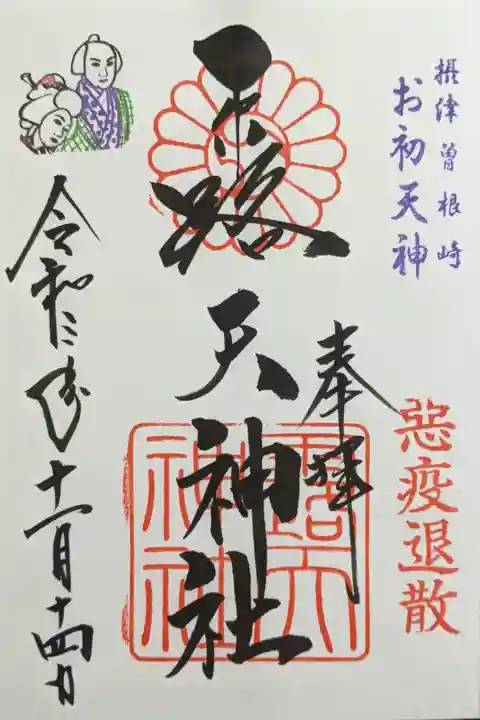 摂津曽根崎
お初天神
奉拝
悪疫退散
露天神社
露天神社
令和二年十一月十四日